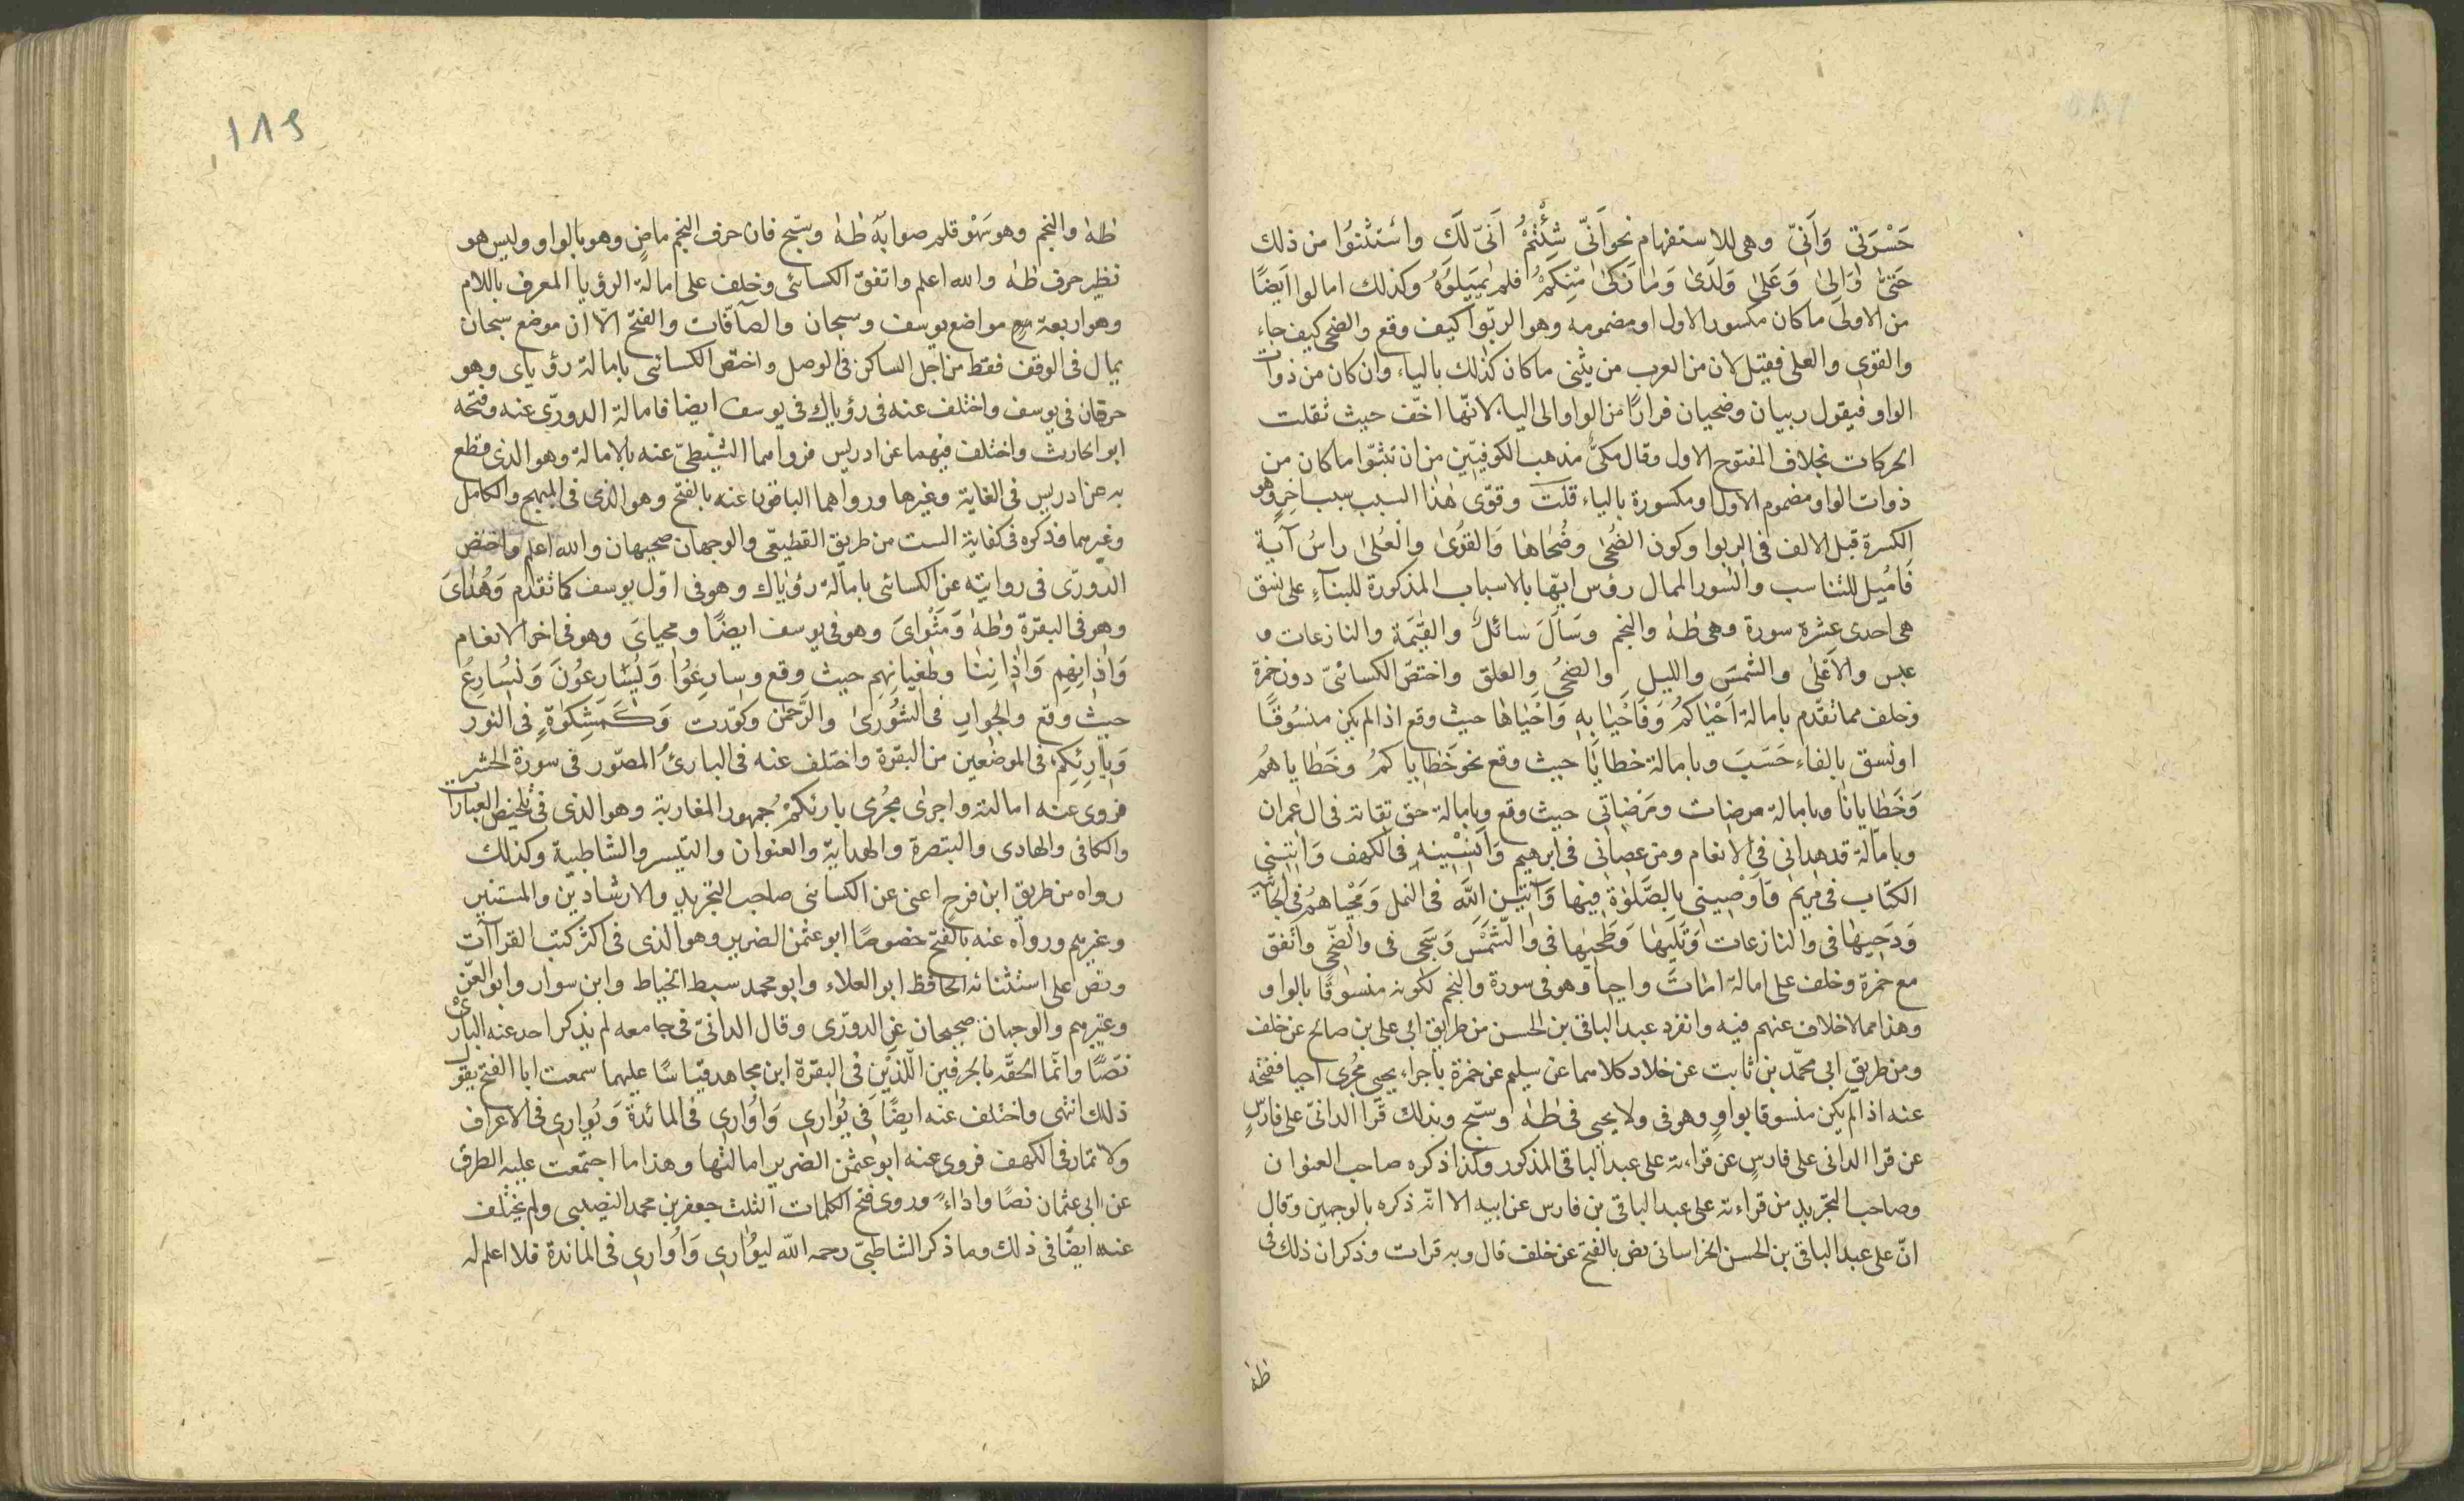 حَسْرَتى وَاَنّى وهى للاستفهام نحو اَنّى شِئْتُمْ اَنّى لَكَ واسْتثْنوُا من ذلك
حَتىّٰ وَاِلىٰ وَعَلىٰ وَلَدَىٰ وَمٰا زَكىٰ مِنْكمُ فلم يُميلوُهُ وكذلك امالوا ايَضًا
من الاولى ما كان مكسور الاول او مضمومه وهو الربٰوا كيف وقع والضحى كيف جاء
والقوى والعلى فقيل لان من العرب من يثنى ما كان كذلك بالياء وان كان من ذوات
الواو فيقول ربيان وضحيان فرارًا من الواو الى الياء لانّها اخفّ حيث ثقلت
الحركات بخلاف المفتوح الاول وقال مكىٌّ مذهب الكوفيّين من ان تثنّوا ما كان من
ذوات الواو مضموم الاول او مكسورة بالياء قلت وقوّى هٰذا السبب سبب اخر وهو
الكسرة قبل الالف فى الربوا وكون الضُحٰى وضُحٰاها وَالقوُىٰ والْعُلىٰ راسُ آيَة
فَاُميل للتناسب والسور الممال رؤس ايّها بالاسباب المذكورة للبناءِ على نسق
هى احدى عشرة سورة وهى طٰهٰ والنجم وسَاَلَ سٰائلٌ والقِيٰمَة والنازعات و
عبس والاعْلٰى والشمسَ والليل والضحىُ والعلق واختصّ الكسائىّ دون حمزة
وخلف مما تقدّم بامالة اَحْياكمُ وَفَاَحْيٰا بهِ وَاَحْيٰاها حيث وقع اذا لم يكن منسُوقًا
او نسق بالفاء حَسَبَ وبامالة خطايٰا حيث وقع نحو خَطٰاياكمُ وخَطٰاياهمُ
وَخَطٰايٰانٰا وبامالة مرضات ومَرْضٰاتى حيث وقع وبامالة حق تقاته فى ال عمران
وبامالة قد هدانى فى الانعام ومن عصٰانى فى ابرهيم وَاَنْسٰينهِ فى الكهف وَاٰتٰينى
الكتاب فى مريم وَاَوْصٰينى بالصَّلوٰة فيها وَاٰتيٰنِ اللهُ فى النمل وَمَحْيٰاهمُ فى الجاثية
وَدَحيٰها فى والنازعات وَتَليٰها وَطَحيٰها فى والشّمْسِ وَسَجى فى والضّحى واتفق
مع حمزة وخلف على امالة امٰاتَ واحيٰا وهو فى سورة والنجم لكونه منسوقًا بالواو
وهذا مما لا خلاف عنهم فيه وانفرد عبد الباقى بن الحسن من طريق ابى على بن صالح عن خلف
ومن طريق ابى محمّد بن ثابت عن خلاد كلاهما عن سليم عن حمزة باجراء يحيى مُجْرى احيا ففتحه
عنه اذا لم يكن منسوقا بواوٍ وهو فى ولا يحيى فى طٰهٰ وسبّح وبذلك قرا الدانىّ على فارسٍ
عن قرا الدانى على فارسٍ عن قراءته على عبد الباقى المذكور وكذا ذكره صاحب العنوان
وصاحب التجريد من قراءته على عبد الباقى بن فارس عن ابيه الا انّه ذكره بالوجهين وقال
انّ على عبد الباقى بن الحسن الخراسانى نص بالفتح عن خلف قال وبه قرات وذكر ان ذلك فى
طٰهٰ
١٨٩
طٰهٰ والنجم وهو سَهْو قلم صوابهُ طٰهٰ وسبّح فان حرف النجم ماضٍ وهو بالواو وليس هو
نظير حرف طٰهٰ والله اعلم واتفق الكسائى وخلف على امالة الرؤيا المعرف باللام
وهو اربعة مواضع يوسف وسبحان والصآفّات والفتح الّا ان موضع سبحان
يمال فى الوقف فقط من اجل الساكن فى الوصل واختصّ الكسائى بامالة رؤياى وهو
حرفان فى يوسف واختلف عنه فى رؤياك فى يوسف ايضا فامالة الدورّى عنه وفتحه
ابو الحارث واختلف فيهما عن ادريس فرواهما الشّطىّ عنه بالامالة وهو الذى قطع
به عن ادريس فى الغاية وغيرها ورواهما الباقون عنه بالفتح وهو الذى فى المبهج والكامل
وغيرهما وذكره فى كفاية الست من طريق القطيعّى والوجهان صحيحان والله اعلم واختص
الدورّى فى روايته عن الكسائى بامالة رؤياك وهو فى اوّل يوسف كما تقدم وَهُدٰاىَ
وهو فى البقرة وطٰهٰ وَمَثْواىَ وهو فى يوسف ايضًا ومحياىَ وهو فى اخر الانعام
وَاٰذٰانِهِم وَاٰذٰانِنٰا وطغيانِهِم حيث وقع وسارِعوُا وَيُسٰارِعوُنَ وَنُسٰارِعُ
حيث وقع والجوارِ فى الشوُرىٰ والرَّحْمٰن وكوّرت وَكَمِشْكوٰةٍ فى النور
وَبارِئِكمُ فى الموضعين من البقرة واختلف عنه فى البارئُ المصّور فى سورة الحشر
فروى عنه امالته واجرى مجُرى بارئكمُ جُمهور المغاربة وهو الذى فى تلخيص العبارات
والكافى والهادى والتبصرة والهداية والعنوان والتيسر والشاطبية وكذلك
رواه من طريق ابن فرح اعنى عن الكسائى صاحب التجريد والارشاديّن والمستنير
وغيرهم ورواه عنه بالفتح خصوصًا ابو عثمن الضرير وهو الذى فى اكثر كتب القراآت
ونص على استثنائه الحافظ ابو العلاء وابو محمد سبط الخياط وابن سوار وابو العزّ
وغيرهم والوجهان صحيحان عن الدورّى وقال الدانىّ فى جامعه لم يذكر احد عنه البارئ
نصّاً وانمّا الحقّه بالحرفين الّلذَيْنِ فى البقرة ابن مجاهد قياسًا عليهما سمعت ابا الفتح يقول
ذلك انتهى واختلف عنه ايضًا فى يُوٰارى وَاُوٰارى فى المائدة وَيُوٰارى فى الاعراف
ولا تمار فى الكهف فروى عنه ابو عثمٰن الضرير امالتها وهذا ما اجتمعت عليه الطرق
عن ابى عثمان نصًا واداءً وروى فتح الكلمات الثلث جعفر بن محمد النصيبى ولم يختلف
عنه ايضًا فى ذلك وما ذكر الشاطبىّ رحمه الله ليوُٰارى وَاوُٰارى فى المائدة فلا اعلم له